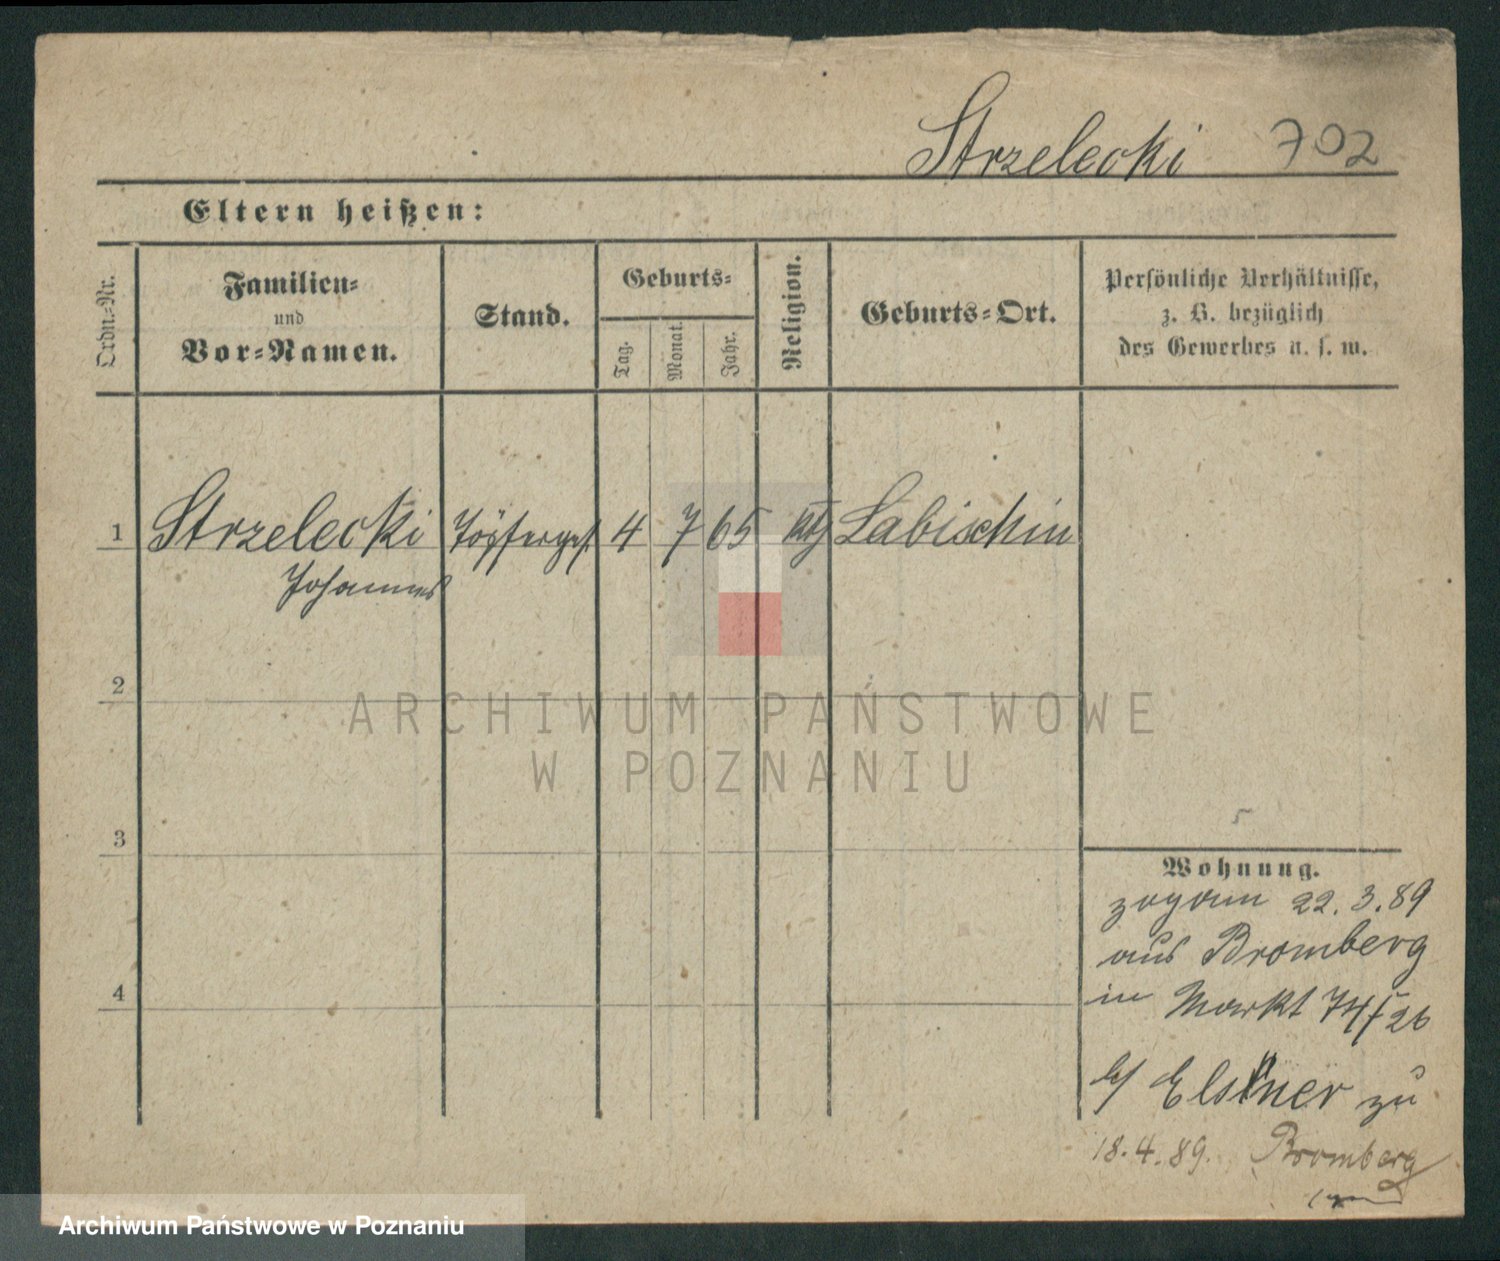 Strzelecki 702
Eltern heißen:
Ordn.-Nr.
Familien-
und
Vor-Namen.
Stand.
Geburts-
Tag.
Monat.
Jahr.
Religion.
Geburts-Ort.
Persönliche Verhältnisse,
z. B. bezüglich
des Gewerbes u. s. w.
1 Strzelecki Töpferges. 4 7 65 kth Labischin
Johannes
2
3
4
Wohnung.
zogann 22.3.89
aus Bromberg
in Markt 74/26
b/ Elsner zu
18.4.89. Bromberg
ARCHIWUM PAŃSTWOWE
W POZNANIU
Archiwum Państwowe w Poznaniu